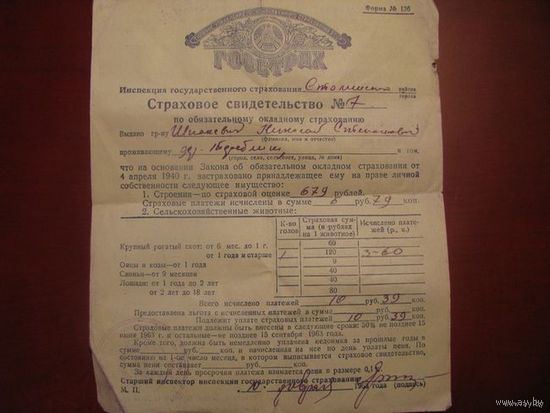 Форма № 126
ГОССТРАХ
Инспекция государственного страхования Столинского района
города
Страховое свидетельство № 7
по обязательному окладному страхованию
Выдано гр-ну Николай Степанович
(фамилия, имя и отчество)
проживающему в том,
(город, село, сельсовет, улица, № дома)
что на основании Закона об обязательном окладном страховании от
4 апреля 1940 г. застраховано принадлежащее ему на праве личной
собственности следующее имущество:
1. Строения—по страховой оценке 679 рублей.
Страховые платежи исчислены в сумме 6 руб. 79 коп.
2. Сельскохозяйственные животные:
К-во голов
Страховая сумма (в рублях на 1 животное)
Исчислено платежей (р., к.)
Крупный рогатый скот: от 6 мес. до 1 г. 60
от 1 года и старше 1 120 3-60
Овцы и козы—от 1 года 9
Свиньи—от 9 месяцев 40
Лошади: от 1 года до 2 лет 40
от 2 лет до 18 лет 80
Всего исчислено платежей 10 руб. 39 коп.
Предоставлена льгота с исчисленных платежей в сумме руб. коп.
Подлежит уплате страховых платежей 10 руб. 39 коп.
Страховые платежи должны быть внесены в следующие сроки: 50% не позднее 15
июня 1963 г. и остальные—не позднее 15 сентября 1963 года.
Кроме того, должна быть немедленно уплачена недоимка за прошлые годы в
сумме руб. коп. и начисленная на нее по день уплаты пеня. По
состоянию на 1-ое число месяца, в котором выписывается страховое свидетельство,
сумма пени составляет руб. коп.
За каждый день просрочки платежа начисляется пеня в размере 0,1%.
Старший инспектор инспекции государственного страхования
(подпись)
М. П. 10 года
www.ay.by